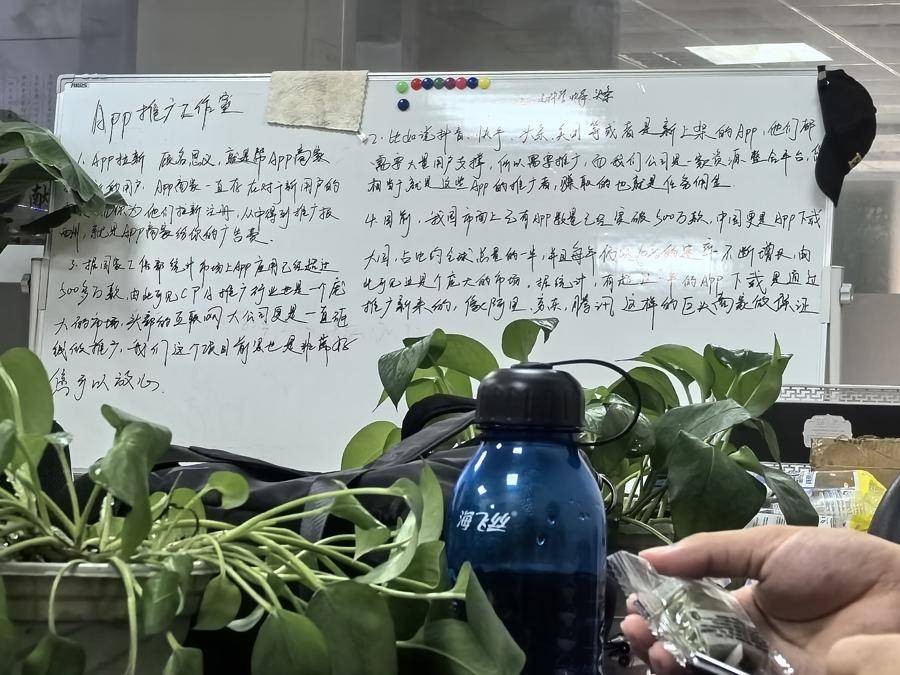 App推广工作室
1. App拉新 顾名思义,就是帮App商家
的用户,App商家一直存在对于新用户的
你为他们拉新注册,从中得到推广报
酬,就是App商家给你的广告费.
3. 据国家工信部统计市场上App应用已经超过
500多万款,由此可见CPA推广行业也是一个庞
大的市场,头部的互联网大公司更是一直延
续做推广,我们这个项目前景也是非常好
您可以放心.
2. 比如说抖音、快手、头条、美团等或者是新上架的App,他们都
需要大量用户支撑,所以需要推广,而我们公司是一家资源整合平台,
相当于就是这些App的推广者,赚取的也就是任务佣金.
4. 目前,我国市面上已有App数量已经突破500万款,中国更是App下载
大国,占比约全球总量的一半,并且每年 不断增长,由
此可见这是个庞大的市场.据统计,有超过一半的App下载是通过
推广新来的,像阿里、京东、腾讯这样的巨头商家做保证